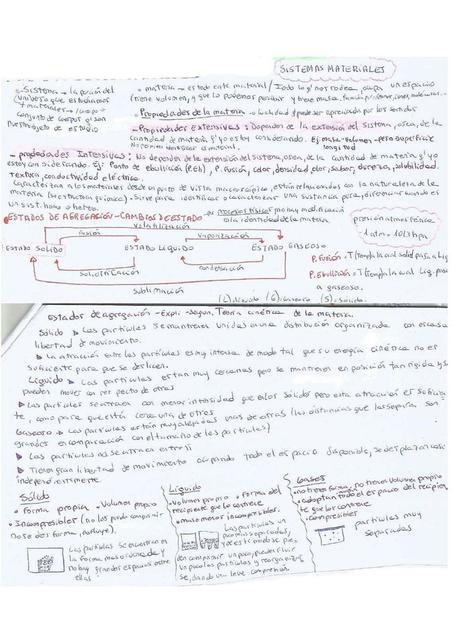 SISTEMAS MATERIALES
• Sistema → la porción del
universo que estudiamos
+ materiales → cuerpo +
conjunto de cuerpos q' son
nuestro objeto de estudio
• materia → es todo ente material / Todo lo q' nos rodea, ocupa un espacio
(tiene volumen, y que lo podemos percibir y tiene masa.
• Propiedades de la materia → cualidad q' puede ser apreciada por los sentidos
- Propiedades Extensivas: Dependen de la extensión del sistema, osea, de la
cantidad de materia q' yo estoy considerando. Ej: masa - volumen - peso - superficie
No permiten identificar al material.
- propiedades Intensivas: No dependen de la extensión del sistema, osea, de la cantidad de materia q' yo
estoy considerando. Ej: Punto de ebullición (P.Eb), P. fusión, color, densidad, olor, sabor, dureza, solubilidad,
Textura, conductividad eléctrica.
Caracterizan a los materiales desde un punto de vista macroscópico, están relacionados con la naturaleza de la
materia (estructura química). Sirve para identificar o caracterizar una sustancia pura, diferenciar cuando es
un sist. homo o hetero.
ESTADOS DE AGREGACIÓN - CAMBIOS DE ESTADO → procesos físicos no hay modificación
a la identidad de la materia
presión atmosférica
1 atm = 1013 hpa
Volatilización
fusión
Vaporización
ESTADO SOLIDO
ESTADO LIQUIDO
ESTADO GASEOSO
Solidificación
condensación
Sublimación
P. Fusión = T (temp) a la cual sólid pasa a Liq
P. Ebullición = T (temp) a la cual Liq. pasa
a gaseoso.
(L) = liquido (G) = gaseoso (S) = solido
Estados de agregación - Expli. - Segun. Teoria cinética de la materia.
Sólido • Las partículas se mantienen unidas en una distribución organizada con escasa
libertad de movimiento.
• La atracción entre las partículas es muy intensa de modo tal que su energía cinética no es
suficiente para que se deslicen.
Liquido • Las partículas estan muy cercanas pero se mantienen en posición tan rigida y se
pueden mover con respecto de otras
• Las partículas se atraen con menor intensidad que en los sólidos pero esta atracción es suficien
te, como para que estén cerca una de otras
Gaseoso • Las partículas están muy alejadas unas de otras (las distancias que las separa son
grandes en comparación con el tamaño de las partículas)
• Las partículas no se atraen entre sí
• Tienen gran libertad de movimiento ocupando todo el espacio disponible, se desplazan casi
independientemente.
Sólido
• forma propia - Volumen propio
• Incompresibles (no los puedo comprimir
no se deforma,
Las partículas se encuentran en
la forma mas ordenada y
no hay grandes espacios entre
ellas
Liquido
• Volumen propio • forma del
recipiente que lo contiene
• mas o menos incompresibles.
Las partículas un
poco mas separadas,
y es esto donde se pue-
den comprimir un poco, pueden fluir
un poco las partículas y reorganizar
se, dando una leve compresión
GASES
• no tienen forma, no tienen volumen propio
• adoptan todo el espacio del recipien
te que lo contiene
• compresibles
partículas muy
separadas